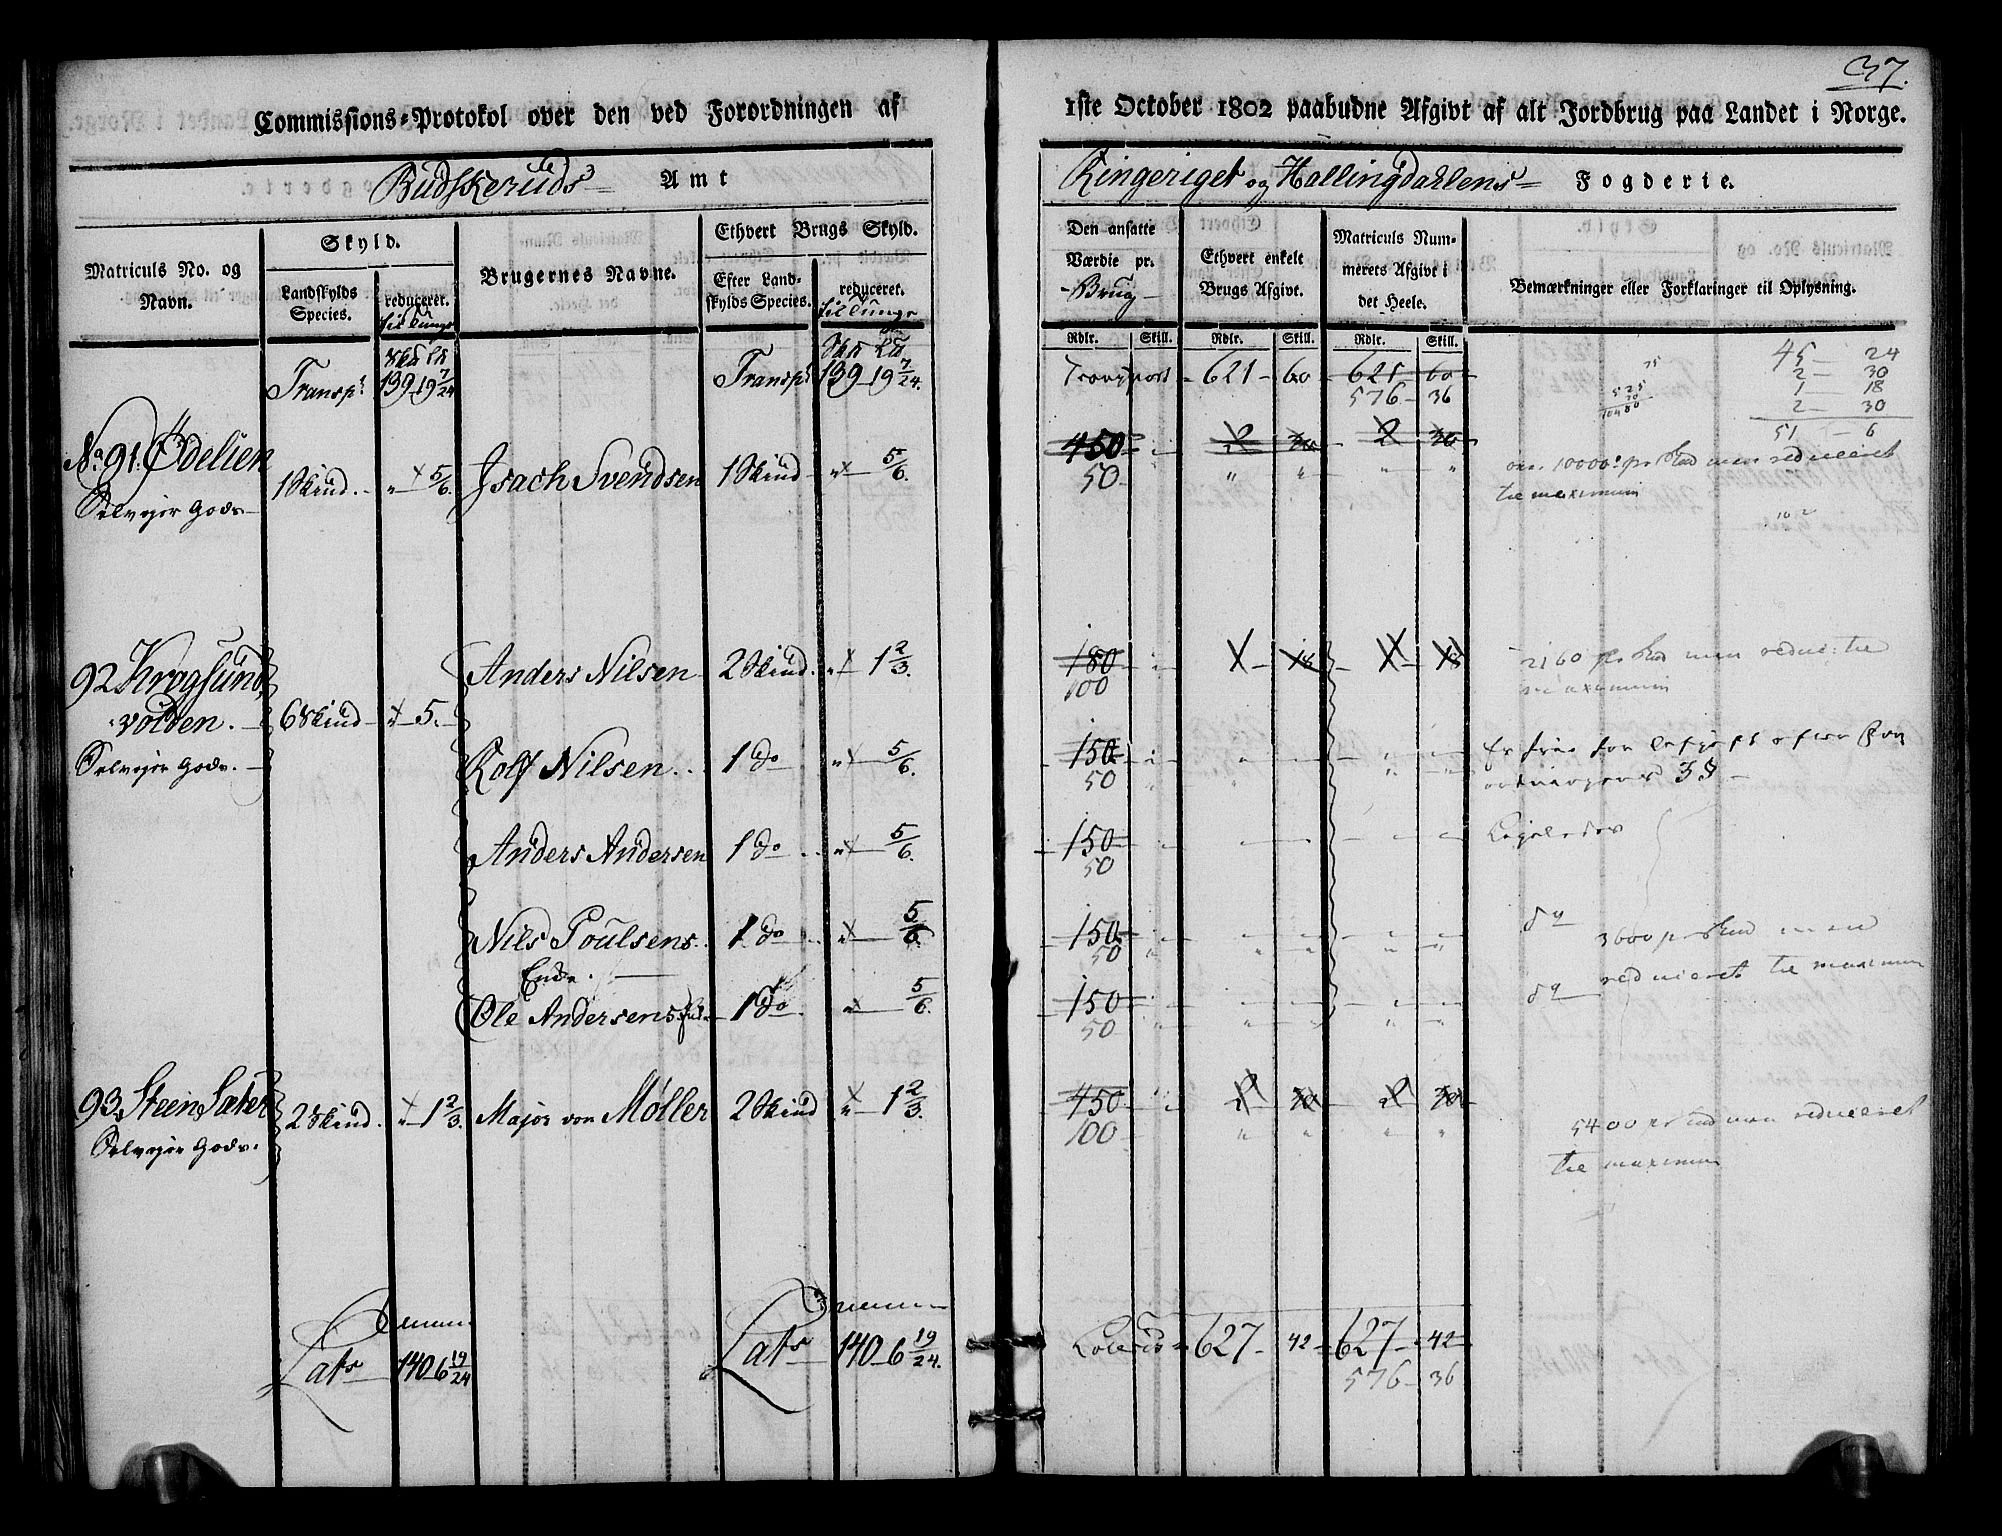 37.
Commissions-Protokol over den ved Forordningen af 1ste October 1802 paabudne Afgivt af alt Jordbrug paa Landet i Norge.
Budskeruds Amt
Ringeriget og Hallingdahlens Fogderie.
Matriculs No. og Navn.
Skyld.
Landskylds Species.
reduceret.
til Tunge
Brugernes Navne.
Ethvert Brugs Skyld.
Efter Landskylds Species.
reduceret.
til Tunge
Den ansatte Værdie pr.
Brug
Ethvert enkelt Brugs Afgivt.
Matriculs Nummerets Afgivt i det Heele.
Bemærkninger eller Forklaringer til Oplysning.
Rdlr. Skill. Rdlr. Skill. Rdlr. Skill.
Transpt 139 - 19 7/24 Transpt 139 - 19 7/24. Transport 621 - 60 621 60
576 - 36
45 - 24
2 - 30
1 - 18
2 - 30
51 - 6
No. 91. Ödelien 1 Skind. 5/6. Isach Svendsen 1 Skind 5/6. 450 2 30 2 30
Selvejer Gods 50 10000 pr Skd men reduceret
til maximum
92 Kragsund 6 Skind 5. Anders Nilsen 2 Skind. 1 2/3. 180 1 18 1 18 2160 pr Skd men reduc: til
volden. 100 maximum
Selvejer Gods. Rolf Nilsen 1 do 5/6. 150 Er frie for Afgift efter For
50 ordningens 3 §
Anders Andersen 1 do 5/6. 150 Ligeledes
50
Nils Poulsens 1 do 5/6. 150 do 3600 pr Skd men
Enke. 50 reduceret til maximum
Ole Andersens 1 do 5/6. 150 do
50
93. Steen Sæter 2 Skind. 1 2/3. Major von Møller 2 Skind 1 2/3. 450 2 30 2 30
Selvejer Gods. 100 5400 pr Skd men reduceret
til maximum
Summa Summa
Lats 140 6 19/24 Lats 140 6 19/24. 627 - 42 627 - 42
576 - 36